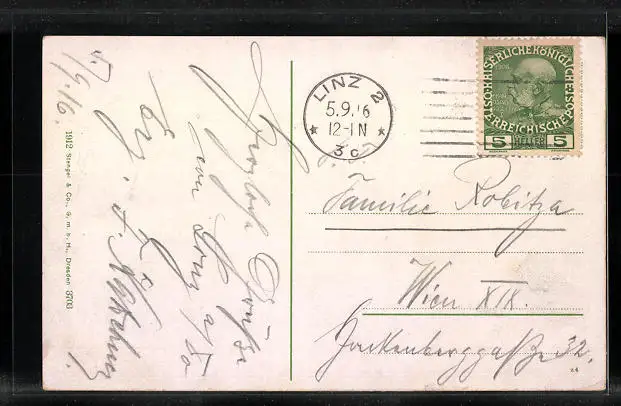 5./9.16.
Herzliche Grüße
von Linz a/D
1912 Stengel & Co., G. m. b. H., Dresden 3703
LINZ 2
5.9.16
12-1N
* 3c *
KAISERLICHE KÖNIGLICHE
ÖSTERREICHISCHE POST
5 HELLER 5
Familie Robitza
Wien XIX.
32.
24